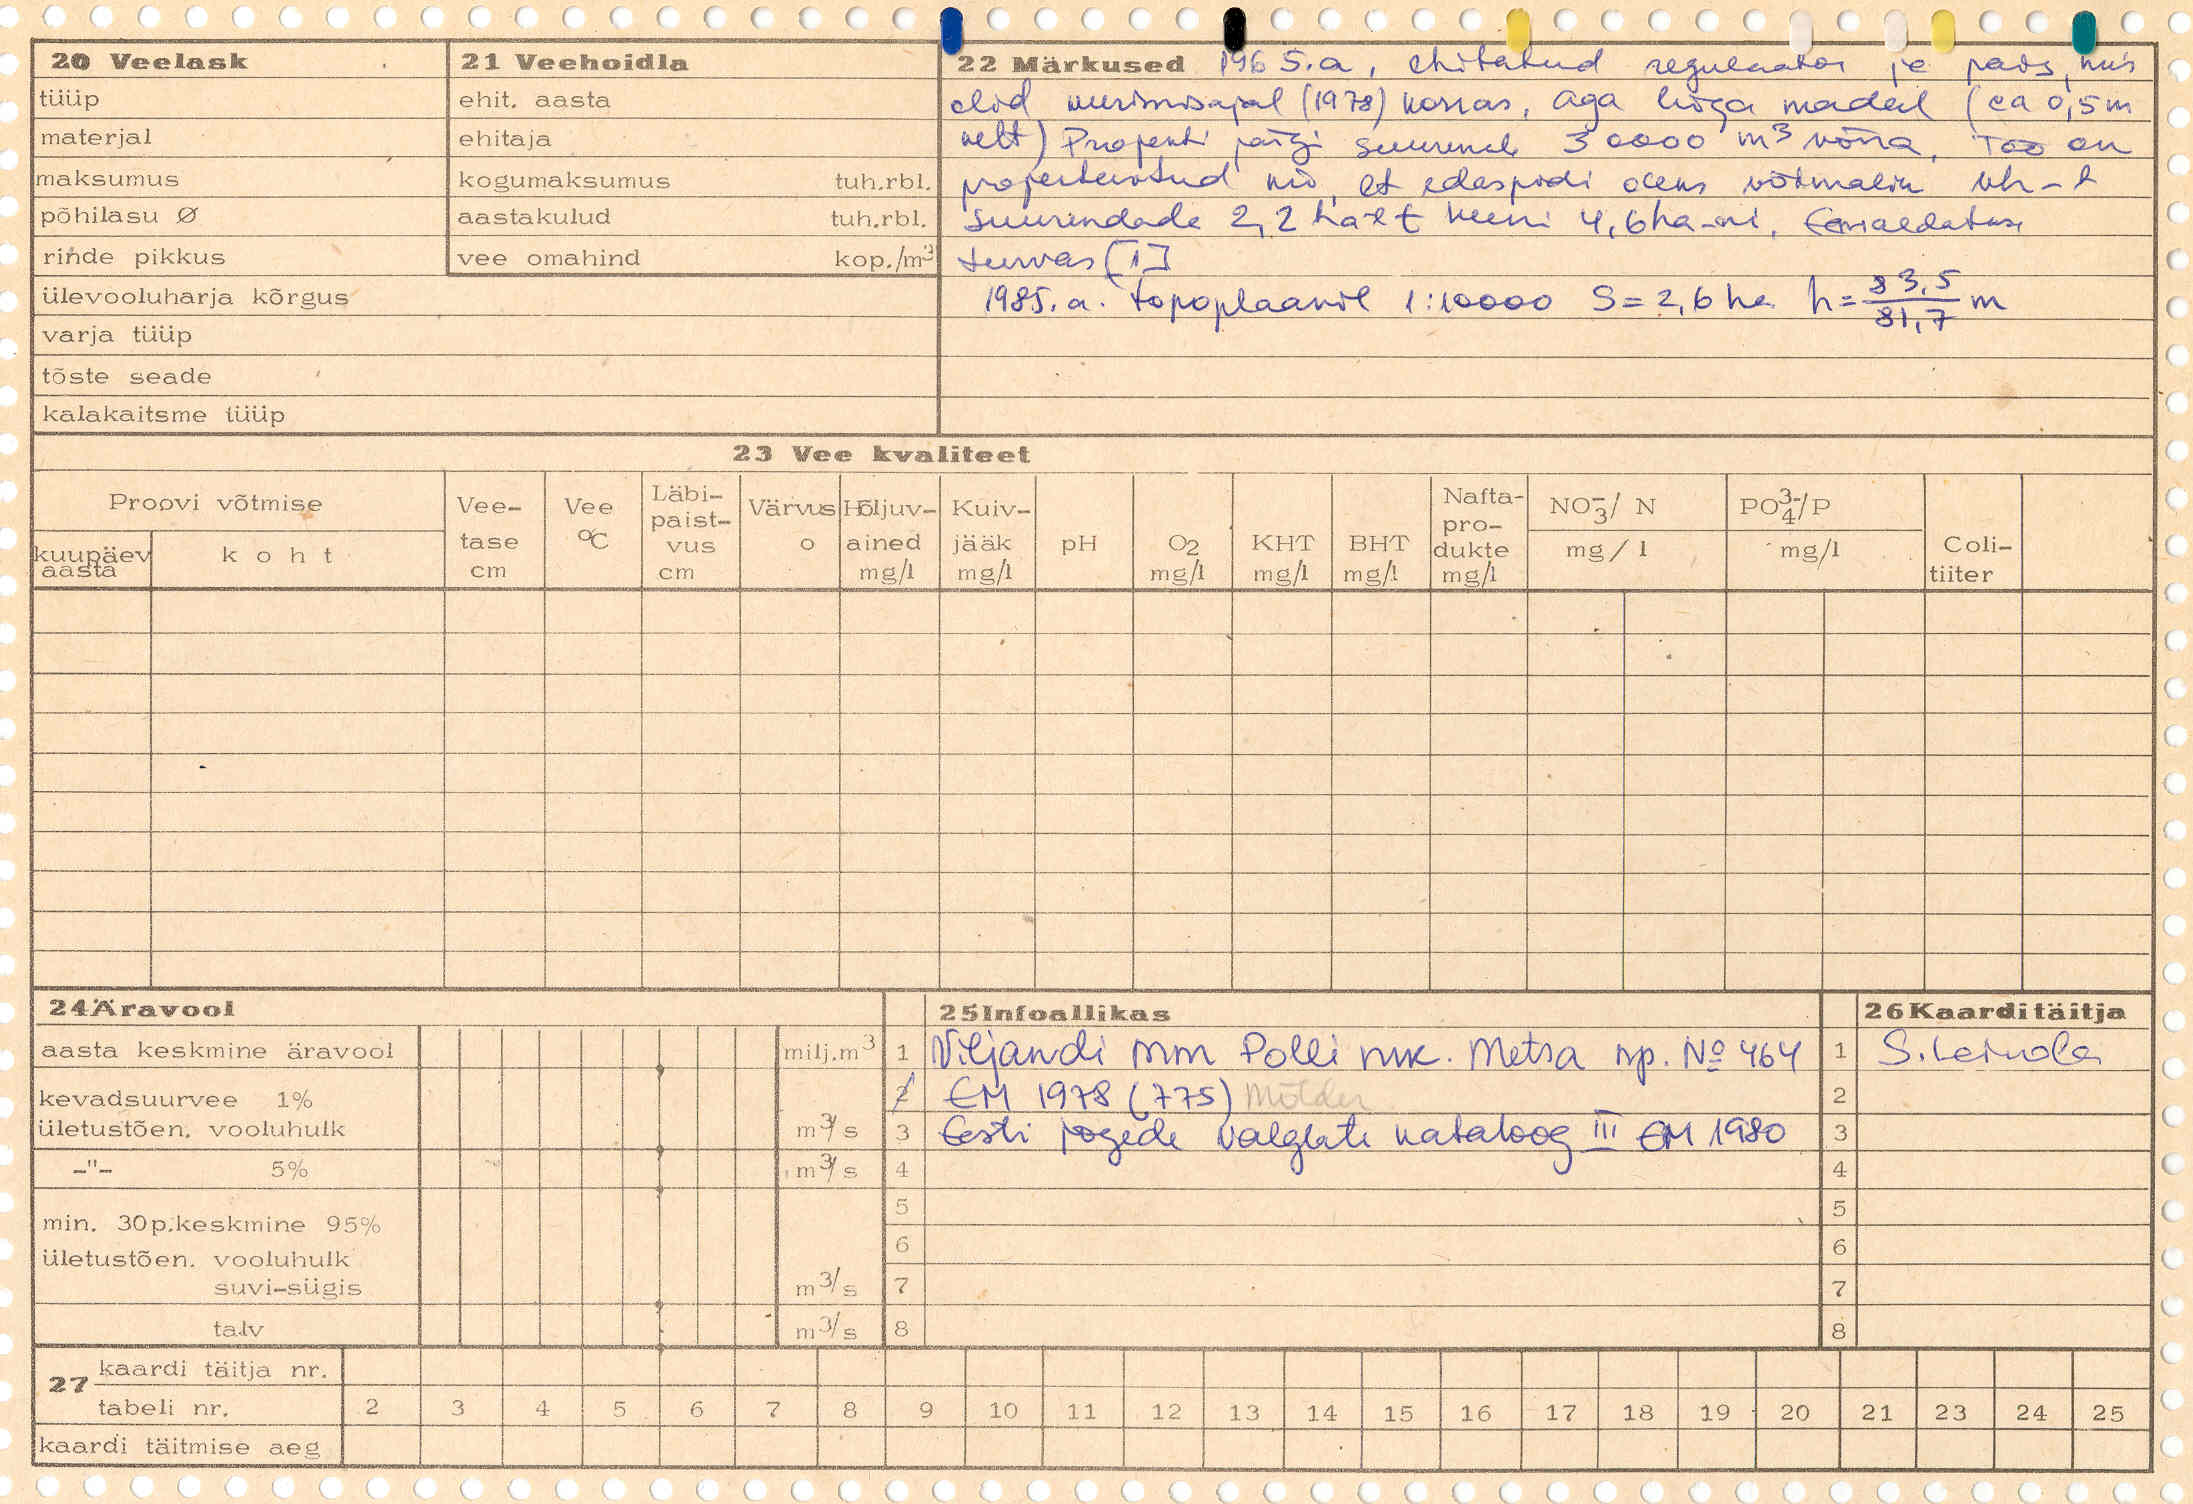 20 Veelask
tüüp
materjal
maksumus
põhilasu Ø
rinde pikkus
ülevooluharja kõrgus
varja tüüp
tõste seade
kalakaitsme tüüp
21 Veehoidla
ehit. aasta
ehitaja
kogumaksumus tuh.rbl.
aastakulud tuh.rbl.
vee omahind kop./m³
22 Märkused 1965.a, ehitatud regulaator ja pais, mis
olid uurimisajal (1978) korras, aga liiga madal (ca 0,5m
vett) Projekti järgi suureneb 30000 m³ võrra, Töö on
projekteeritud nii, et edaspidi oleks võimalik vh-t
suurendada 2,2 ha-lt kuni 4,6ha-ni, Eemaldatuse
turvas [1]
1985.a. topoplaanil 1:10000 S=2,6 ha h= 83,5/81,7 m
23 Vee kvaliteet
Proovi võtmise
kuupäev aasta
koht
Veetase cm
Vee °C
Läbi-paist-vus cm
Värvus o
Hõljuv-ained mg/l
Kuiv-jääk mg/l
pH
O2 mg/l
KHT mg/l
BHT mg/l
Nafta-pro-dukte mg/l
NO₃⁻/ N mg/l
PO₄³⁻/P mg/l
Coli-tiiter
24 Äravool
aasta keskmine äravool milj.m³
kevadsuurvee 1%
ületustõen. vooluhulk m³/s
-"- 5% m³/s
min. 30p.keskmine 95%
ületustõen. vooluhulk
suvi-sügis m³/s
talv m³/s
25 Infoallikas
1 Viljandi mm Polli mk. Metsa mp. № 464
2 EM 1978 (775) Mölder
3 Eesti jõgede valglate kataloog III EM 1980
4
5
6
7
8
26 Kaarditäitja
1
2
3
4
5
6
7
8
27 kaardi täitja nr.
tabeli nr. 2 3 4 5 6 7 8 9 10 11 12 13 14 15 16 17 18 19 20 21 23 24 25
kaardi täitmise aeg